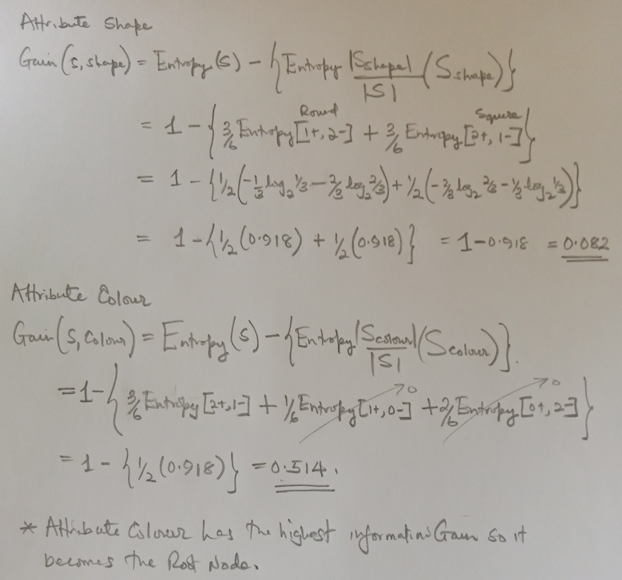 Attribute Shape
Gain(S, shape) = Entropy(S) - {Entropy |Sshape|/|S| (Sshape)}
= 1 - {3/6 Entropy[1+, 2-] Round + 3/6 Entropy[2+, 1-] Square}
= 1 - {1/2(-1/3 log₂ 1/3 - 2/3 log₂ 2/3) + 1/2(-2/3 log₂ 2/3 - 1/3 log₂ 1/3)}
= 1 - {1/2(0.918) + 1/2(0.918)} = 1-0.918 = 0.082
Attribute Colour
Gain(S, Colour) = Entropy(S) - {Entropy |Scolour|/|S| (Scolour)}.
= 1 - {3/6 Entropy[2+, 1-] + 1/6 Entropy[1+, 0-] → 0 + 2/6 Entropy[0+, 2-] → 0}
= 1 - {1/2(0.918)} = 0.514.
* Attribute Colour has the highest information Gain so it
becomes the Root Node.